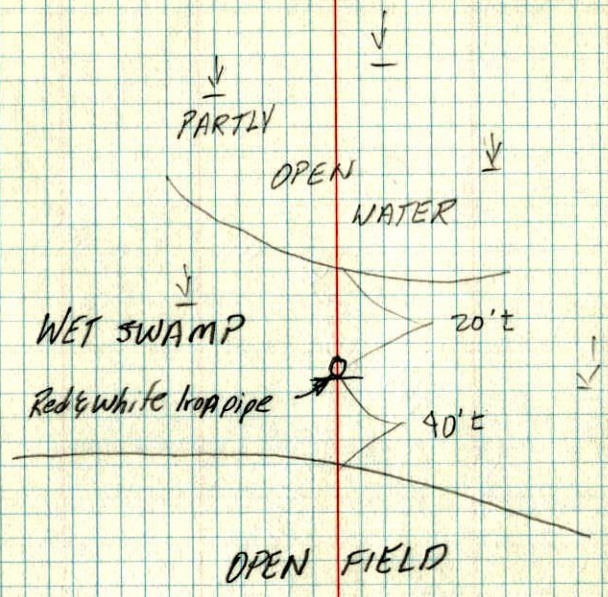 PARTLY
OPEN
WATER
20't
WET SWAMP
Red & White Iron pipe
40't
OPEN FIELD